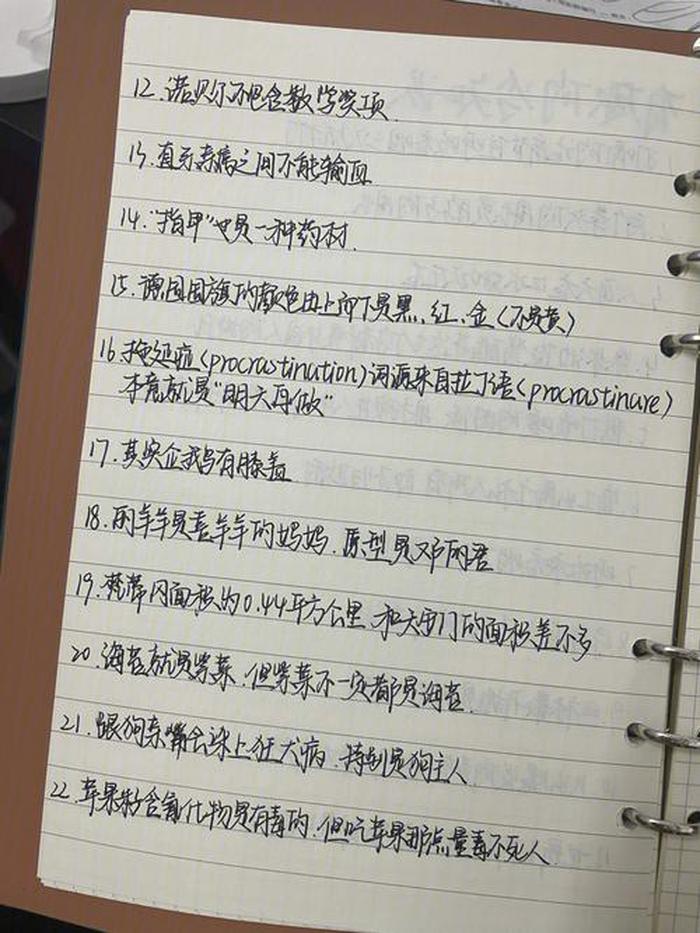 12.诺贝尔不包含数学奖项.
13.直系亲属之间不能输血
14."指甲"也是一种药材.
15.德国国旗的颜色由上而下是黑、红、金(不是黄)
16.拖延症(procrastination)词源来自拉丁语(procrastinare)
本意就是"明天再做"
17.其实企鹅有膝盖
18.丽羊羊是喜羊羊的妈妈.原型是邓丽君
19.梵蒂冈面积约0.44平方公里.和天安门的面积差不多
20.海苔就是紫菜.但紫菜不一定都是海苔.
21.跟狗亲嘴会染上狂犬病.特别是狗主人
22.苹果籽含氰化物是有毒的.但吃苹果那点量毒不死人